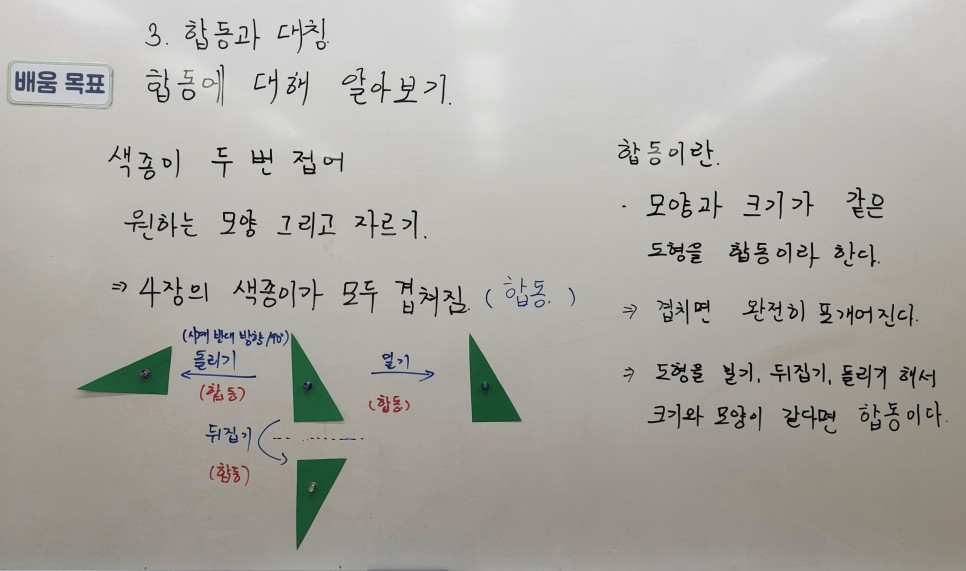 3. 합동과 대칭.
배움 목표
합동에 대해 알아보기.
색종이 두 번 접어
원하는 모양 그리고 자르기.
⇒ 4장의 색종이가 모두 겹쳐짐. (합동.)
(시계 반대 방향 90°)
돌리기
(합동)
밀기
(합동)
뒤집기
(합동)
합동이란.
· 모양과 크기가 같은
도형을 합동이라 한다.
⇒ 겹치면 완전히 포개어진다.
⇒ 도형을 밀기, 뒤집기, 돌리기 해서
크기와 모양이 같다면 합동이다.